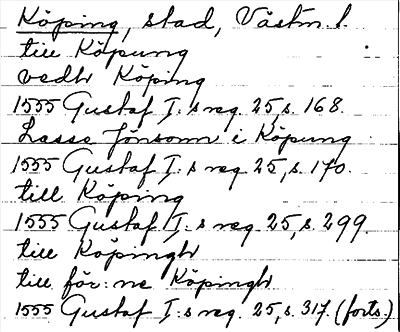 Köping, stad, Västm. l.
till Köpung
vedh Köping
1555 Gustaf I:s reg. 25, s. 168.
Lasse Jönsonn i Köpung
1555 Gustaf I:s reg. 25, s. 170.
till Köping
1555 Gustaf I:s reg. 25, s. 299.
till Köpingh
till för:ne Köpingh
1555 Gustaf I:s reg. 25, s. 317. (forts.)